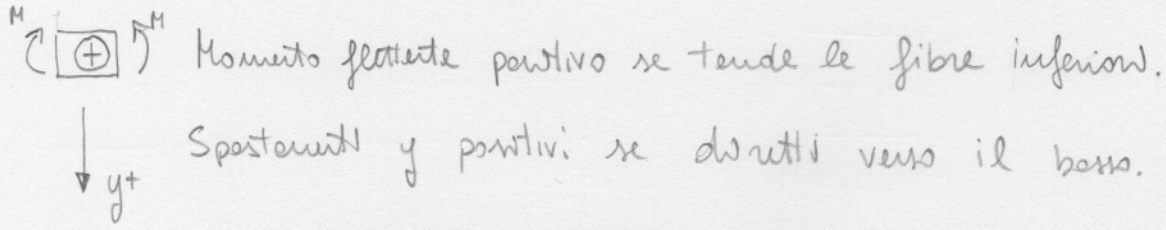 M + M Momento flettente positivo se tende le fibre inferiori.
Spostamenti y positivi se diretti verso il basso.
y+